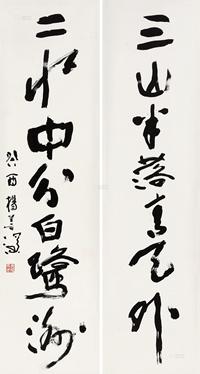 三山半落青天外
二水中分白鹭洲
癸酉 楊善深